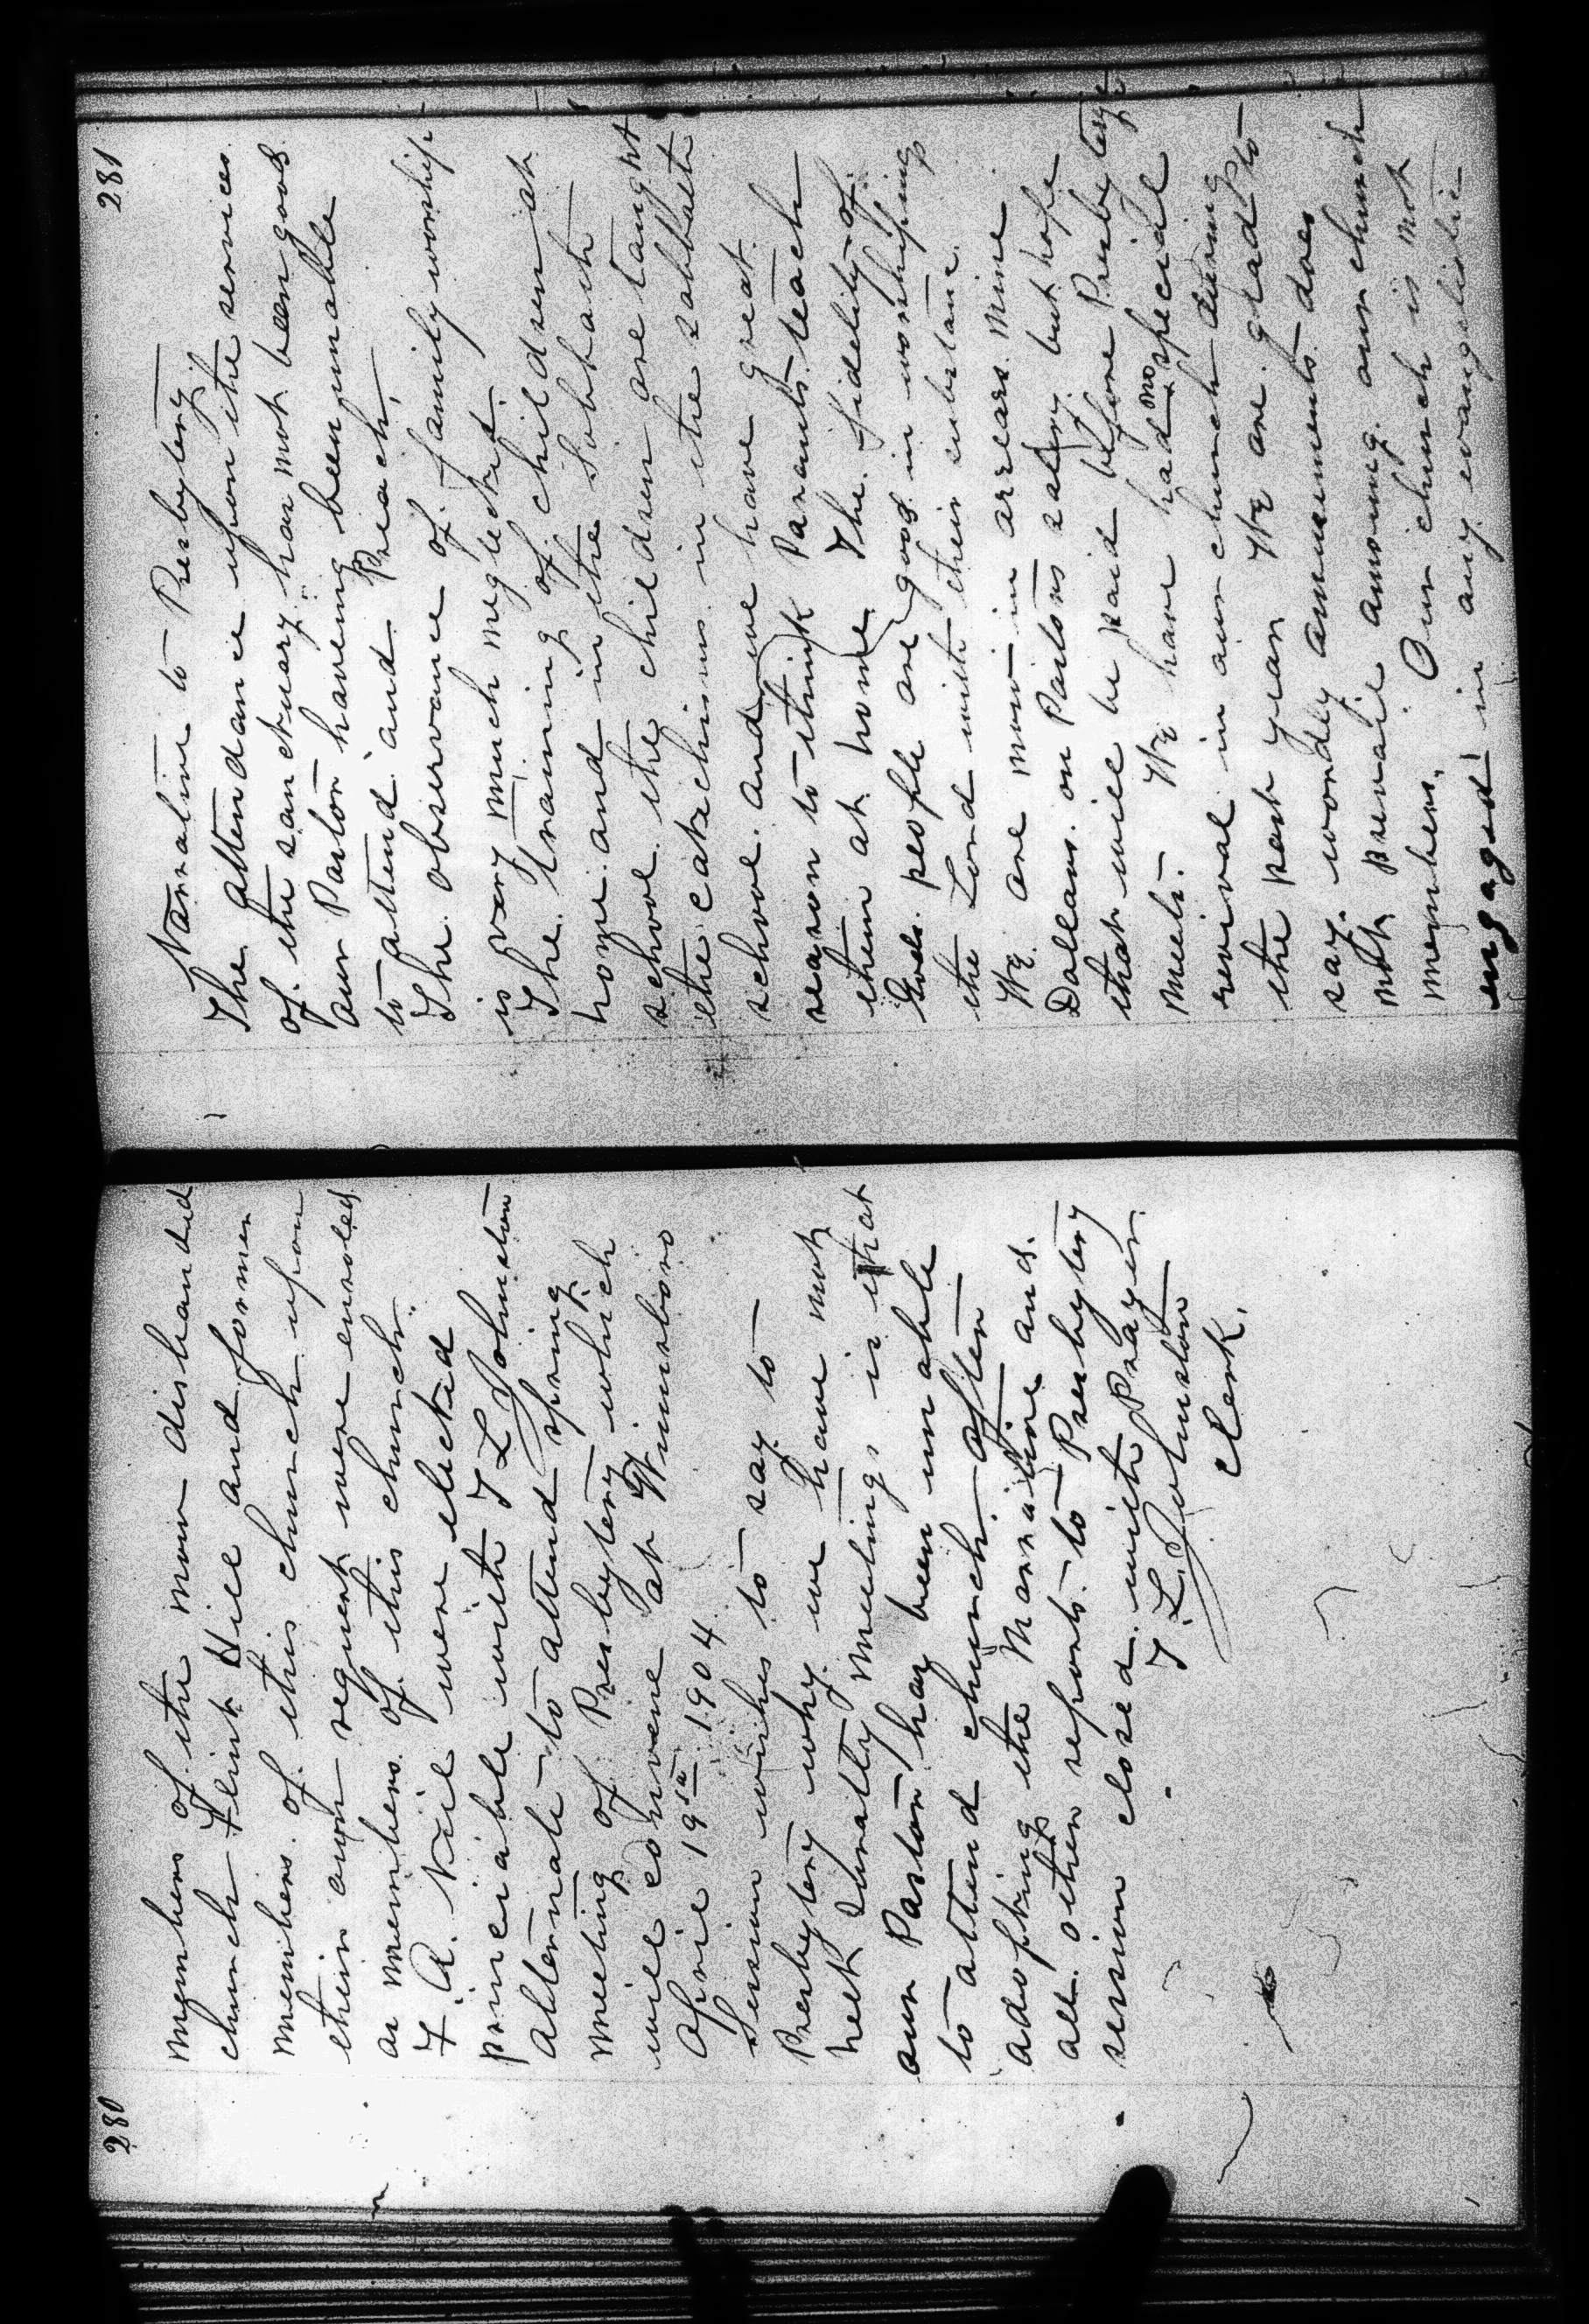 280
members of the now disbanded
church Flint Hill and former
members of this church upon
their own request were enroled
as members of this church.
F. A. Neil were elected
principle with T L Johnston
alternate to attend spring
meeting of Presbytery which
will convene at Winnsboro
April 19th 1904
Session wishes to say to
Presbytery why we have not
held Quratly meetings is that
our Pastor has been unable
to attend church. After
adopting the Narrative and
all other reports to Presbytery
session closed with Prayer.
T. L. Johnston
Clerk.
281
Narrative to Presbytery.
The attendance upon the services
of the sanctuary has not been good
our Pastor having been unable
to attend and Preach,
The observance of family worship
is very much neglected.
The training of children at
home and in the Sabbath
school. the children are taught
the catechisms in the sabbath
school and we have great
reason to think Parents teach
them at home. The fidelity of
Gods people are good in worshiping
the Lord with their substance.
We are now in arrears Nine
Dollars on Pastors salery but hope
that will be paid before Presbytery
meets. We have had no special
revival in our church during
the past year We are glad to
say worldly amusements does
not prevail amoung our church
members. Our church is not
engaged in any evangelistic